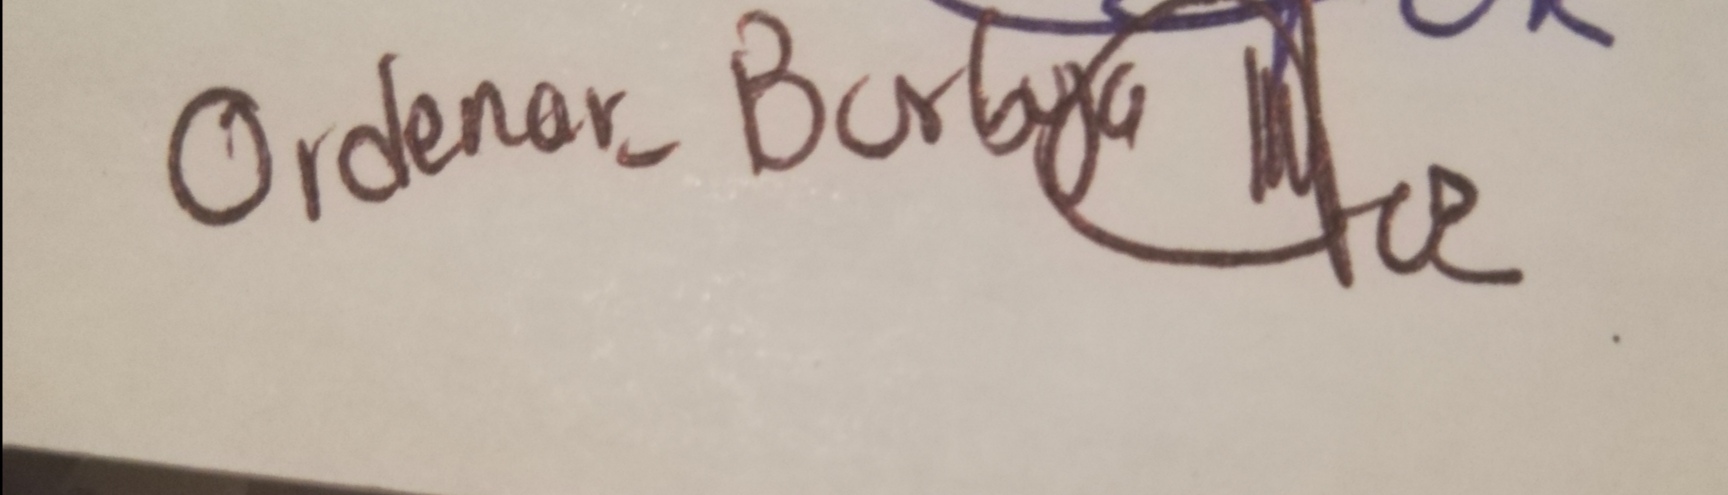 OK
Ordenar_ Burbuja